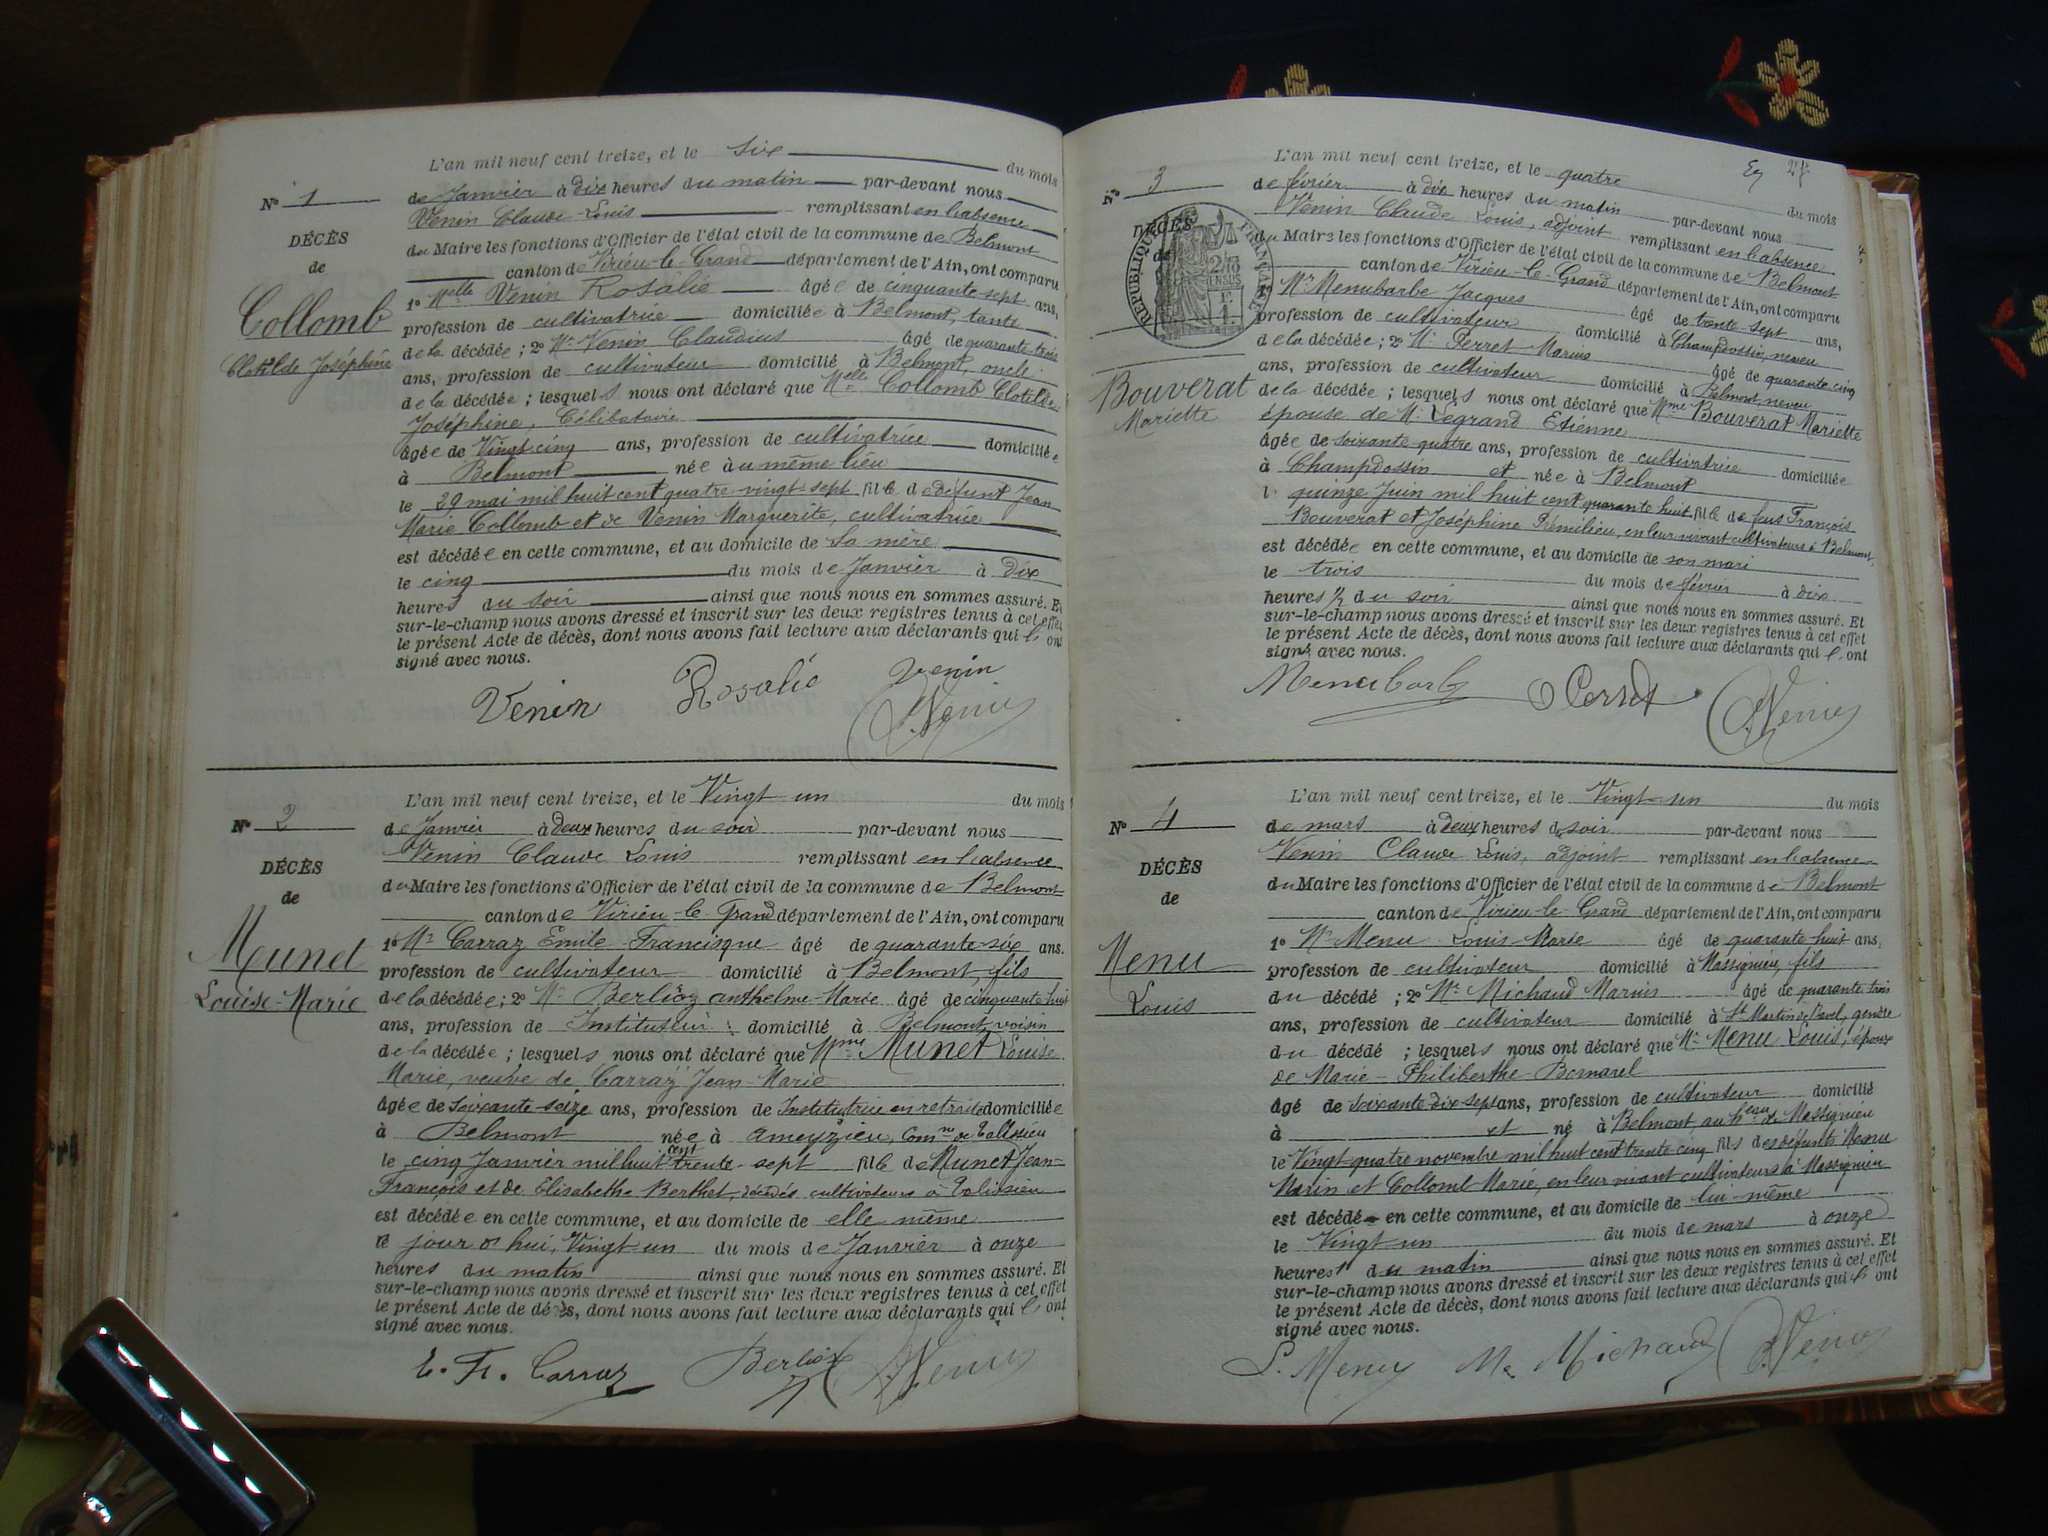 L'an mil neuf cent treize, et le six du mois
N° 1
de Janvier à dix heures du matin par-devant nous
Venin Claude Louis remplissant en l'absence
DÉCÈS
du Maire les fonctions d'Officier de l'état civil de la commune de Belmont
de
canton de Virieu-le-Grand département de l'Ain, ont comparu
Collomb
1° Melle Venin Rosalie âgée de cinquante sept ans,
Clotilde Joséphine
profession de cultivatrice domiciliée à Belmont, tante
de la décédée ; 2° Mr Venin Claudius âgé de quarante trois
ans, profession de cultivateur domicilié à Belmont, oncle
de la décédée ; lesquels nous ont déclaré que Melle Collomb Clotilde
Joséphine, Célibataire
âgée de Vingt cinq ans, profession de cultivatrice domiciliée
à Belmont née à u même lieu
le 29 mai mil huit cent quatre vingt sept fille de défunt Jean
Marie Collomb et de Venin Marguerite, cultivatrice
est décédée en cette commune, et au domicile de sa mère
le cinq du mois de Janvier à dix
heures du soir ainsi que nous nous en sommes assuré. Et
sur-le-champ nous avons dressé et inscrit sur les deux registres tenus à cet effet
le présent Acte de décès, dont nous avons fait lecture aux déclarants qui l' ont
signé avec nous.
Venin Rosalie venin
Venin
L'an mil neuf cent treize, et le Vingt un du mois
N° 2
de Janvier à deux heures du soir par-devant nous
Venin Claude Louis remplissant en l'absence
DÉCÈS
du Maire les fonctions d'Officier de l'état civil de la commune de Belmont
de
canton de Virieu-le-Grand département de l'Ain, ont comparu
Munet
1° Mr Carraz Emile Francisque âgé de quarante-six ans.
Louise-Marie
profession de cultivateur domicilié à Belmont, fils
de la décédée ; 2° Mr Berlioz anthelme-Marie âgé de cinquante huit
ans, profession de Instituteur domicilié à Belmont voisin
de la décédée ; lesquels nous ont déclaré que Mme Munet Louise
Marie, veuve de Carraz Jean-Marie
âgée de soixante-seize ans, profession de Institutrice en retraite domiciliée
à Belmont née à ameyzieu, comne de Talissieu
le cinq Janvier mil huit cent trente-sept fille de Munet Jean-
François et de Elisabethe Berthet, décédés cultivateurs à Talissieu
est décédée en cette commune, et au domicile de elle même
le jour d'hui, Vingt un du mois de Janvier à onze
heures du matin ainsi que nous nous en sommes assuré. Et
sur-le-champ nous avons dressé et inscrit sur les deux registres tenus à cet effet
le présent Acte de décès, dont nous avons fait lecture aux déclarants qui l' ont
signé avec nous.
E. Fr. Carraz Berlioz Venin
27
L'an mil neuf cent treize, et le quatre du mois
N° 3
de février à dix heures du matin par-devant nous
Venin Claude Louis, adjoint remplissant en l'absence
DÉCÈS
du Maire les fonctions d'Officier de l'état civil de la commune de Belmont
de
RÉPUBLIQUE FRANÇAISE
canton de Virieu-le-Grand département de l'Ain, ont comparu
1° Mr Menubarbe Jacques âgé de trente-sept ans,
profession de cultivateur domicilié à Champdossin, neveu
de la décédée ; 2° Mr Perret Marius âgé de quarante cinq
ans, profession de cultivateur domicilié à Belmont, neveu
Bouverat
de la décédée ; lesquels nous ont déclaré que Mme Bouverat Mariette
Mariette
épouse de Mr Legrand Etienne
âgée de soixante quatre ans, profession de cultivatrice domiciliée
à Champdossin et née à Belmont
le quinze Juin mil huit cent quarante huit fille de feus François
Bouverat et Joséphine Pémilieu, en leur vivant cultivateurs à Belmont,
est décédée en cette commune, et au domicile de son mari
le trois du mois de février à dix
heures ½ du soir ainsi que nous nous en sommes assuré. Et
sur-le-champ nous avons dressé et inscrit sur les deux registres tenus à cet effet
le présent Acte de décès, dont nous avons fait lecture aux déclarants qui l' ont
signé avec nous.
Menubarbe Perret Venin
L'an mil neuf cent treize, et le Vingt-un du mois
N° 4
de mars à deux heures du soir par-devant nous
Venin Claude Louis, adjoint remplissant en l'absence
DÉCÈS
du Maire les fonctions d'Officier de l'état civil de la commune de Belmont
de
canton de Virieu-le-Grand département de l'Ain, ont comparu
Menu
1° Mr Menu Louis Marie âgé de quarante huit ans,
Louis
profession de cultivateur domicilié à Massignieu, fils
du décédé ; 2° Mr Michaud Marius âgé de quarante trois
ans, profession de cultivateur domicilié à St Martin de Bavel, gendre
du décédé ; lesquels nous ont déclaré que Mr Menu Louis, époux
de Marie-Philiberthe Bornarel
âgé de soixante dix sept ans, profession de cultivateur domicilié
à et né à Belmont au heau de Massignieu
le Vingt quatre novembre mil huit cent trente cinq fils des défunts Menu
Marin et Collomb Marie, en leur vivant cultivateurs à Massignieu
est décédé en cette commune, et au domicile de lui-même
le Vingt un du mois de mars à onze
heures du matin ainsi que nous nous en sommes assuré. Et
sur-le-champ nous avons dressé et inscrit sur les deux registres tenus à cet effet
le présent Acte de décès, dont nous avons fait lecture aux déclarants qui l' ont
signé avec nous.
L. Menu Ms Michaud Venin